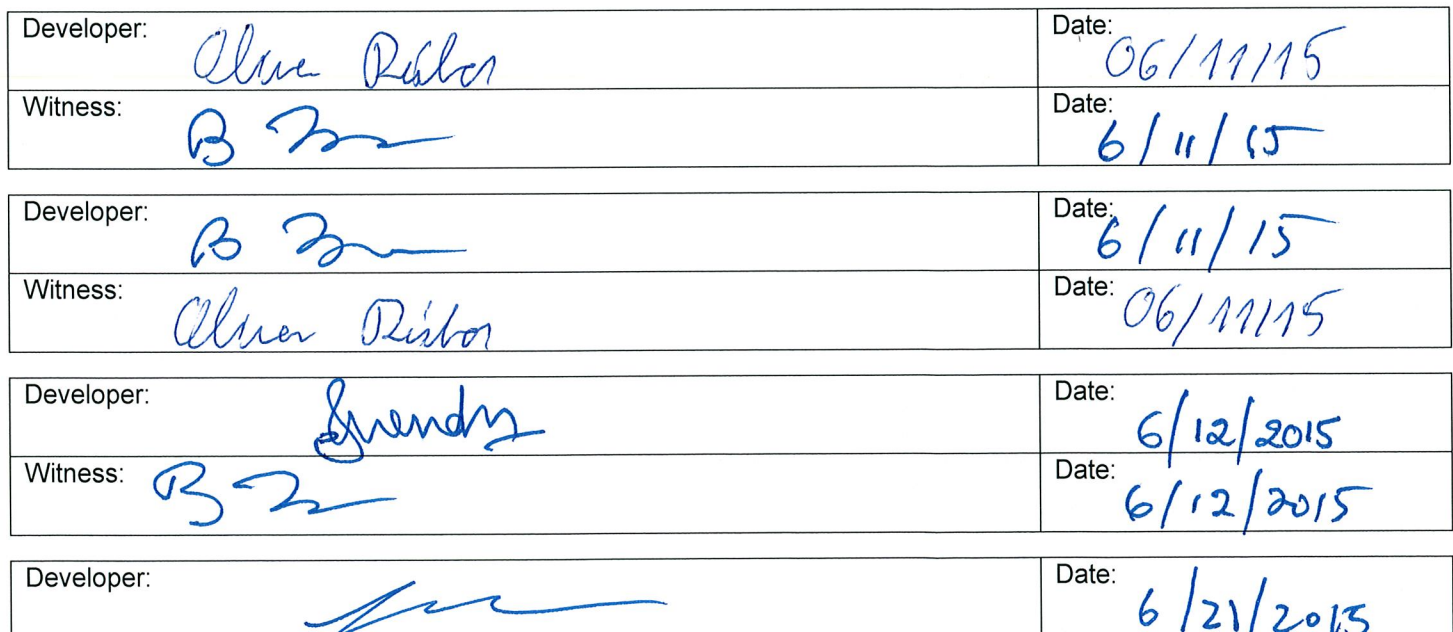 Developer: Date: 06/11/15
Witness: B Date: 6/11/15
Developer: B Date: 6/11/15
Witness: Date: 06/11/15
Developer: Date: 6/12/2015
Witness: B Date: 6/12/2015
Developer: Date: 6/21/2015